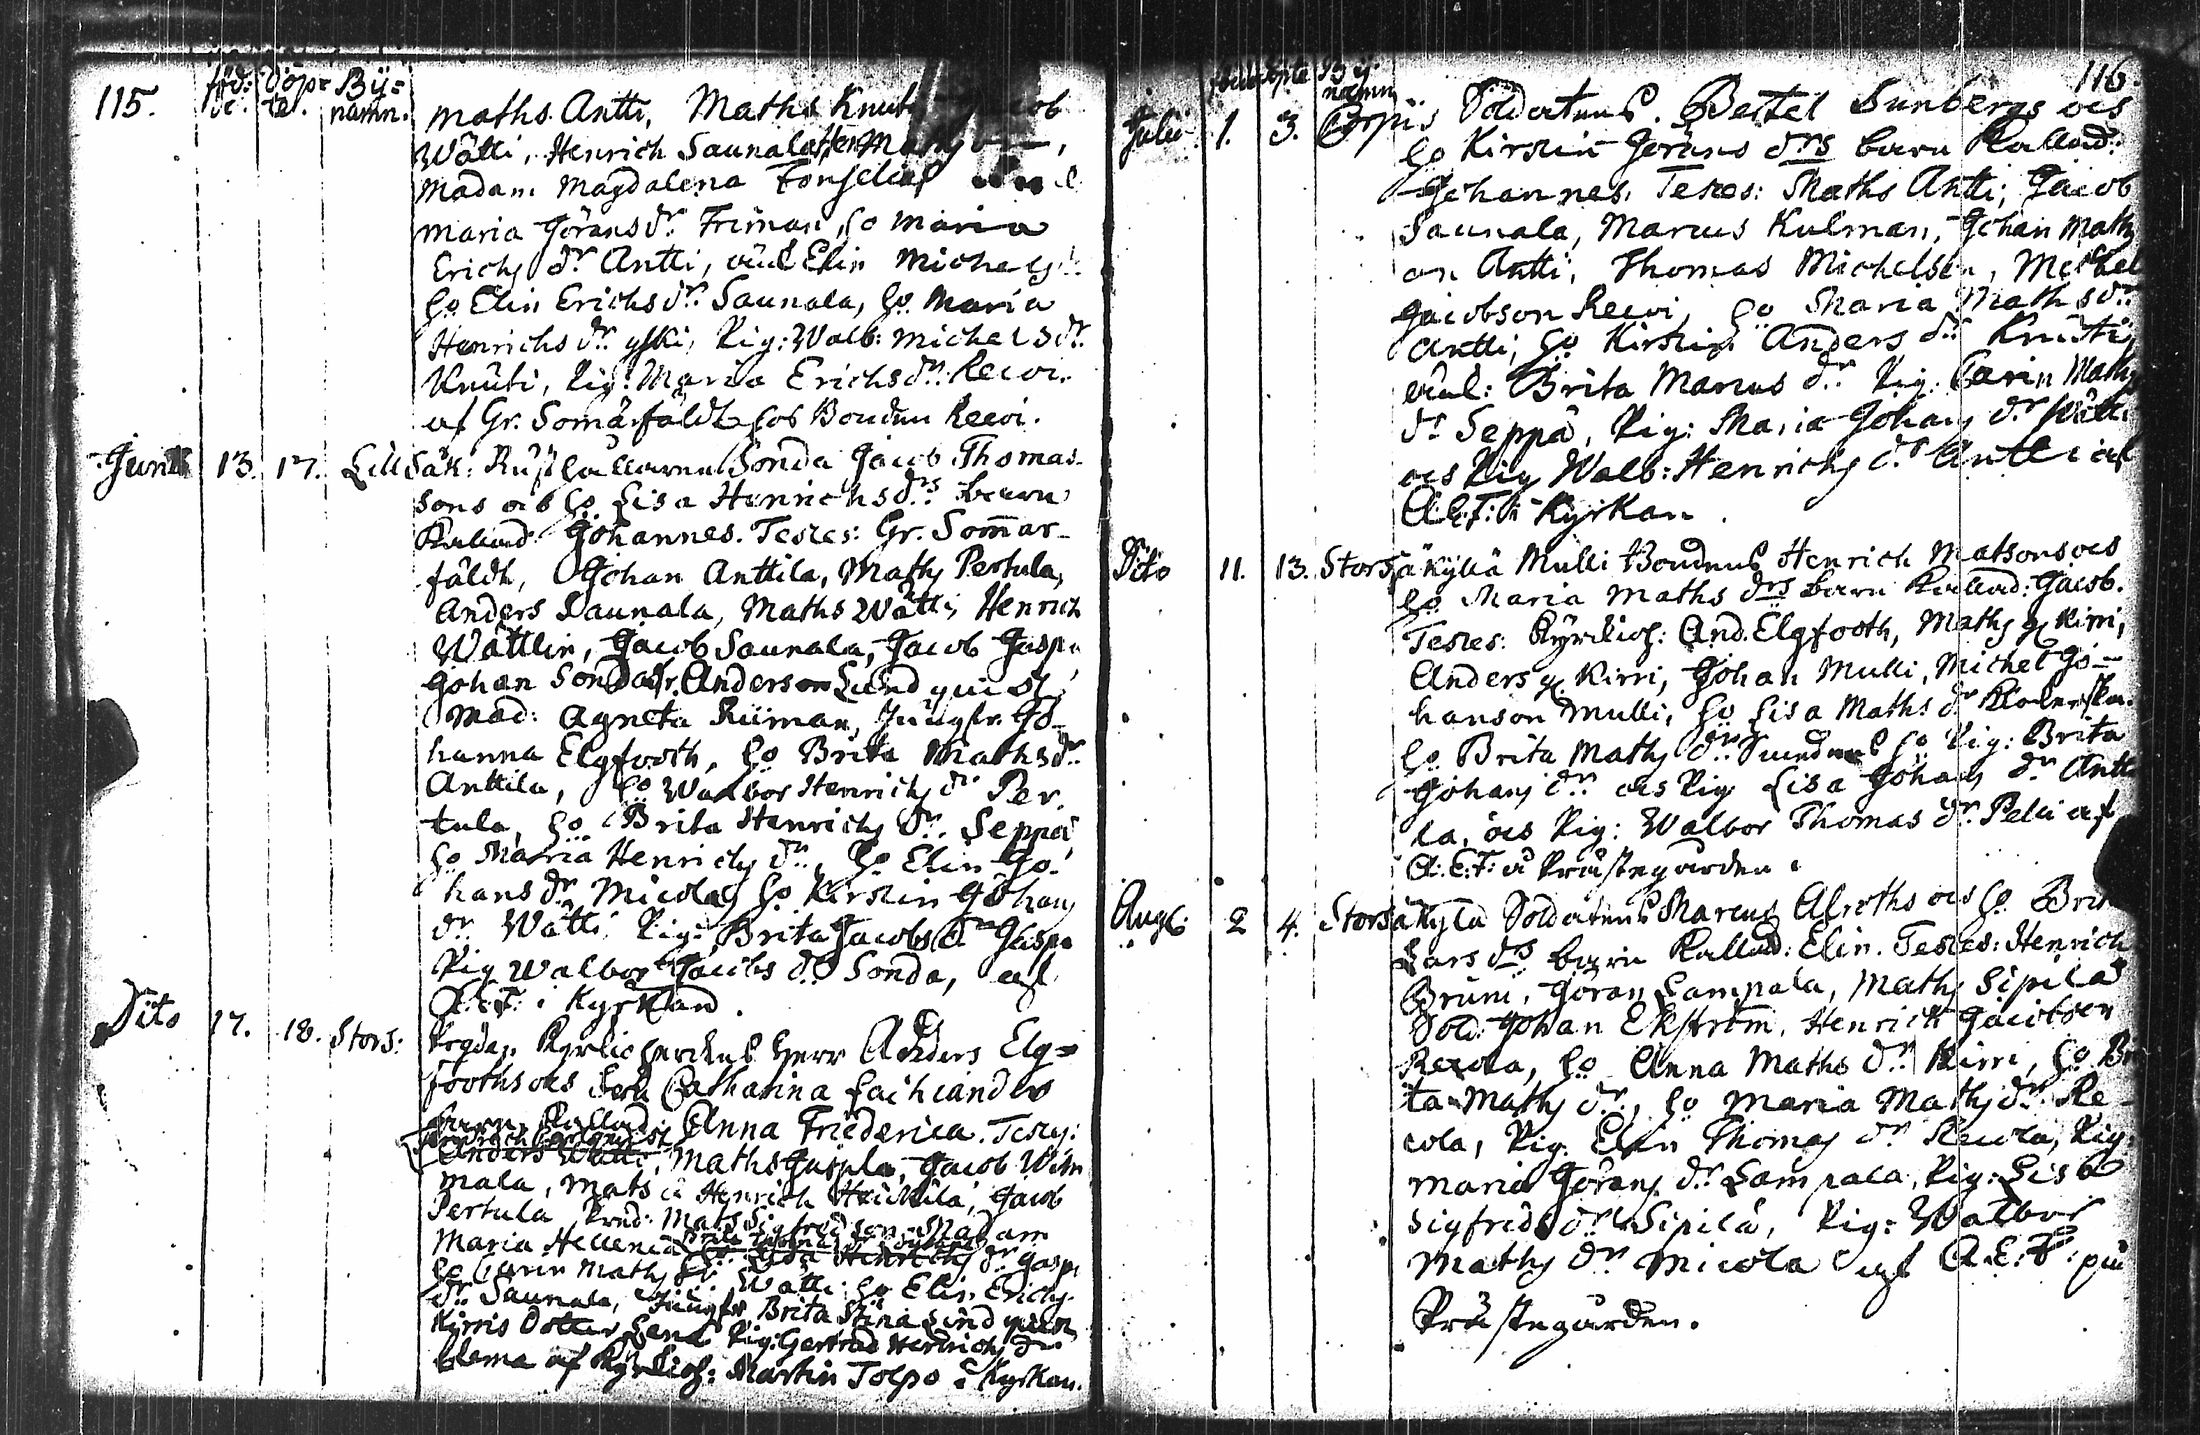 115. föd: döp= Bÿ=
de. te. namn.
maths Antti, Maths Knut Jacob
Wätti, Henrich Saunala,
Madam Magdalena Fonselia
maria Görans dr Friman, ho maria
Erichs dr Antti, Elin Michels dr
ho Elin Erichs dr Saunala, ho maria
Henrichs dr yski, Pig: Walb: michels dr
Knuti, Pig: Maria Erichs dr Rewi.
af Gr. Somarfäldt hos Bonden Rewi.
Junii 13. 17. Lill Säk: Rusthållarens Sonda Jacob Thomas-
sons ocs ho Lisa Henrichs drs barn
Kallad Johannes. Testes: Gr. Som̄ar-
fäldt, Johan Anttila, Maths Pertula,
Anders Saunala, Maths Wätti, Henrich
Wättlin, Jacob Saunala, Jacob Jaspa
Johan Sonda, Anderson Lindquist
Mad: Agneta Riiman, Jungfr. Jo-
hanna Elgfooth, ho Brita Maths dr
Anttila, ho Walbor Henrichs dr Per-
tula, ho Brita Henrichs dr Seppä
ho Maria Henrichs dr, ho Elin Jo-
hans dr Micola, ho Kirstin Johans
dr Wätti, Pig: Brita Jacobs dr Jaspa
Pig Walbor Jacobs dr Sonda, af
A.E.F. i Kyrkan.
Dito 17. 18. Stors: Prgdn. Kyrkioherdens Herr Anders Elg=
fooths ocs Catharina Lachanders
barn Kallad: Anna Friederica. Testes:
Anders Wätti, Maths Jaspila, Jacob Wim
mala, Mats & Henrich Heickilä, Jacob
Pertula, Mats Sigfredson, Madam
Maria Hellenia Henrichs dr Jaspa
ho Carin Maths dr Wätti ho Elin Erichs
dr Saunala, Jungfr Brita Stina Lindquist
Kirris Dotter Lena Pig: Gertrud Henrichs dr
Clema af Kyrkioh: Martin Tolpo i Kyrkan.
116.
födde döpte Bÿ
namn
Julii 1. 3. Corpis Soldatens Bertel Sunbergs ocs
ho Kirstin Jörans drs barn Kallad:
Johannes. Testes: Maths Antti, Jacob
Saunala, Marcus Kulman, Johan Maths
on Antti, Thomas Michelson, Michel
Jacobson Rewi, ho Maria Maths dr
Antti, ho Kirstin Anders dr Knuti,
Brita Marcus dr Pig: Carin Maths
dr Seppä, Pig: Maria Johans dr Wätti
ocs Pig Walb: Henrichs dr Antti af
A:E:F: i Kyrkan.
Dito 11. 13. Storsäkylä Mulli Bondens Henrich Matsons ocs
ho Maria Maths drs barn Kallad: Jacob.
Testes: Kyrkioh: And. Elgfooth, Maths Kirri,
Anders Kirri, Johan Mulli, Michel Jo-
hanson Mulli, ho Lisa Maths dr
ho Brita Maths dr ho Pig: Brita
Johans dr ocs Pig Lisa Johans dr Antti
la, ocs Pig: Walbor Thomas dr Peltti af
A.E.F: å Prästegården.
Aug: 2 4. Storsäkylä Soldatens Marcus Alroths ocs ho Brita
Lars drs barn Kallad: Elin. Testes: Henrich
Bruni, Jöran Lampala, Maths Sipilä
Sold: Johan Ekström, Henrich Jacobson
Recola, ho Anna Maths dr Kirri, ho Bri
ta Maths dr, ho Maria Maths dr Re-
cola, Pig. Elin Thomas dr Recola, Pig:
maria Jörans dr Lampala, Pig: Lisa
Sigfreds dr Sipilä, Pig: Walbor
Maths dr Micola af A.E.F. på
Prästegården.